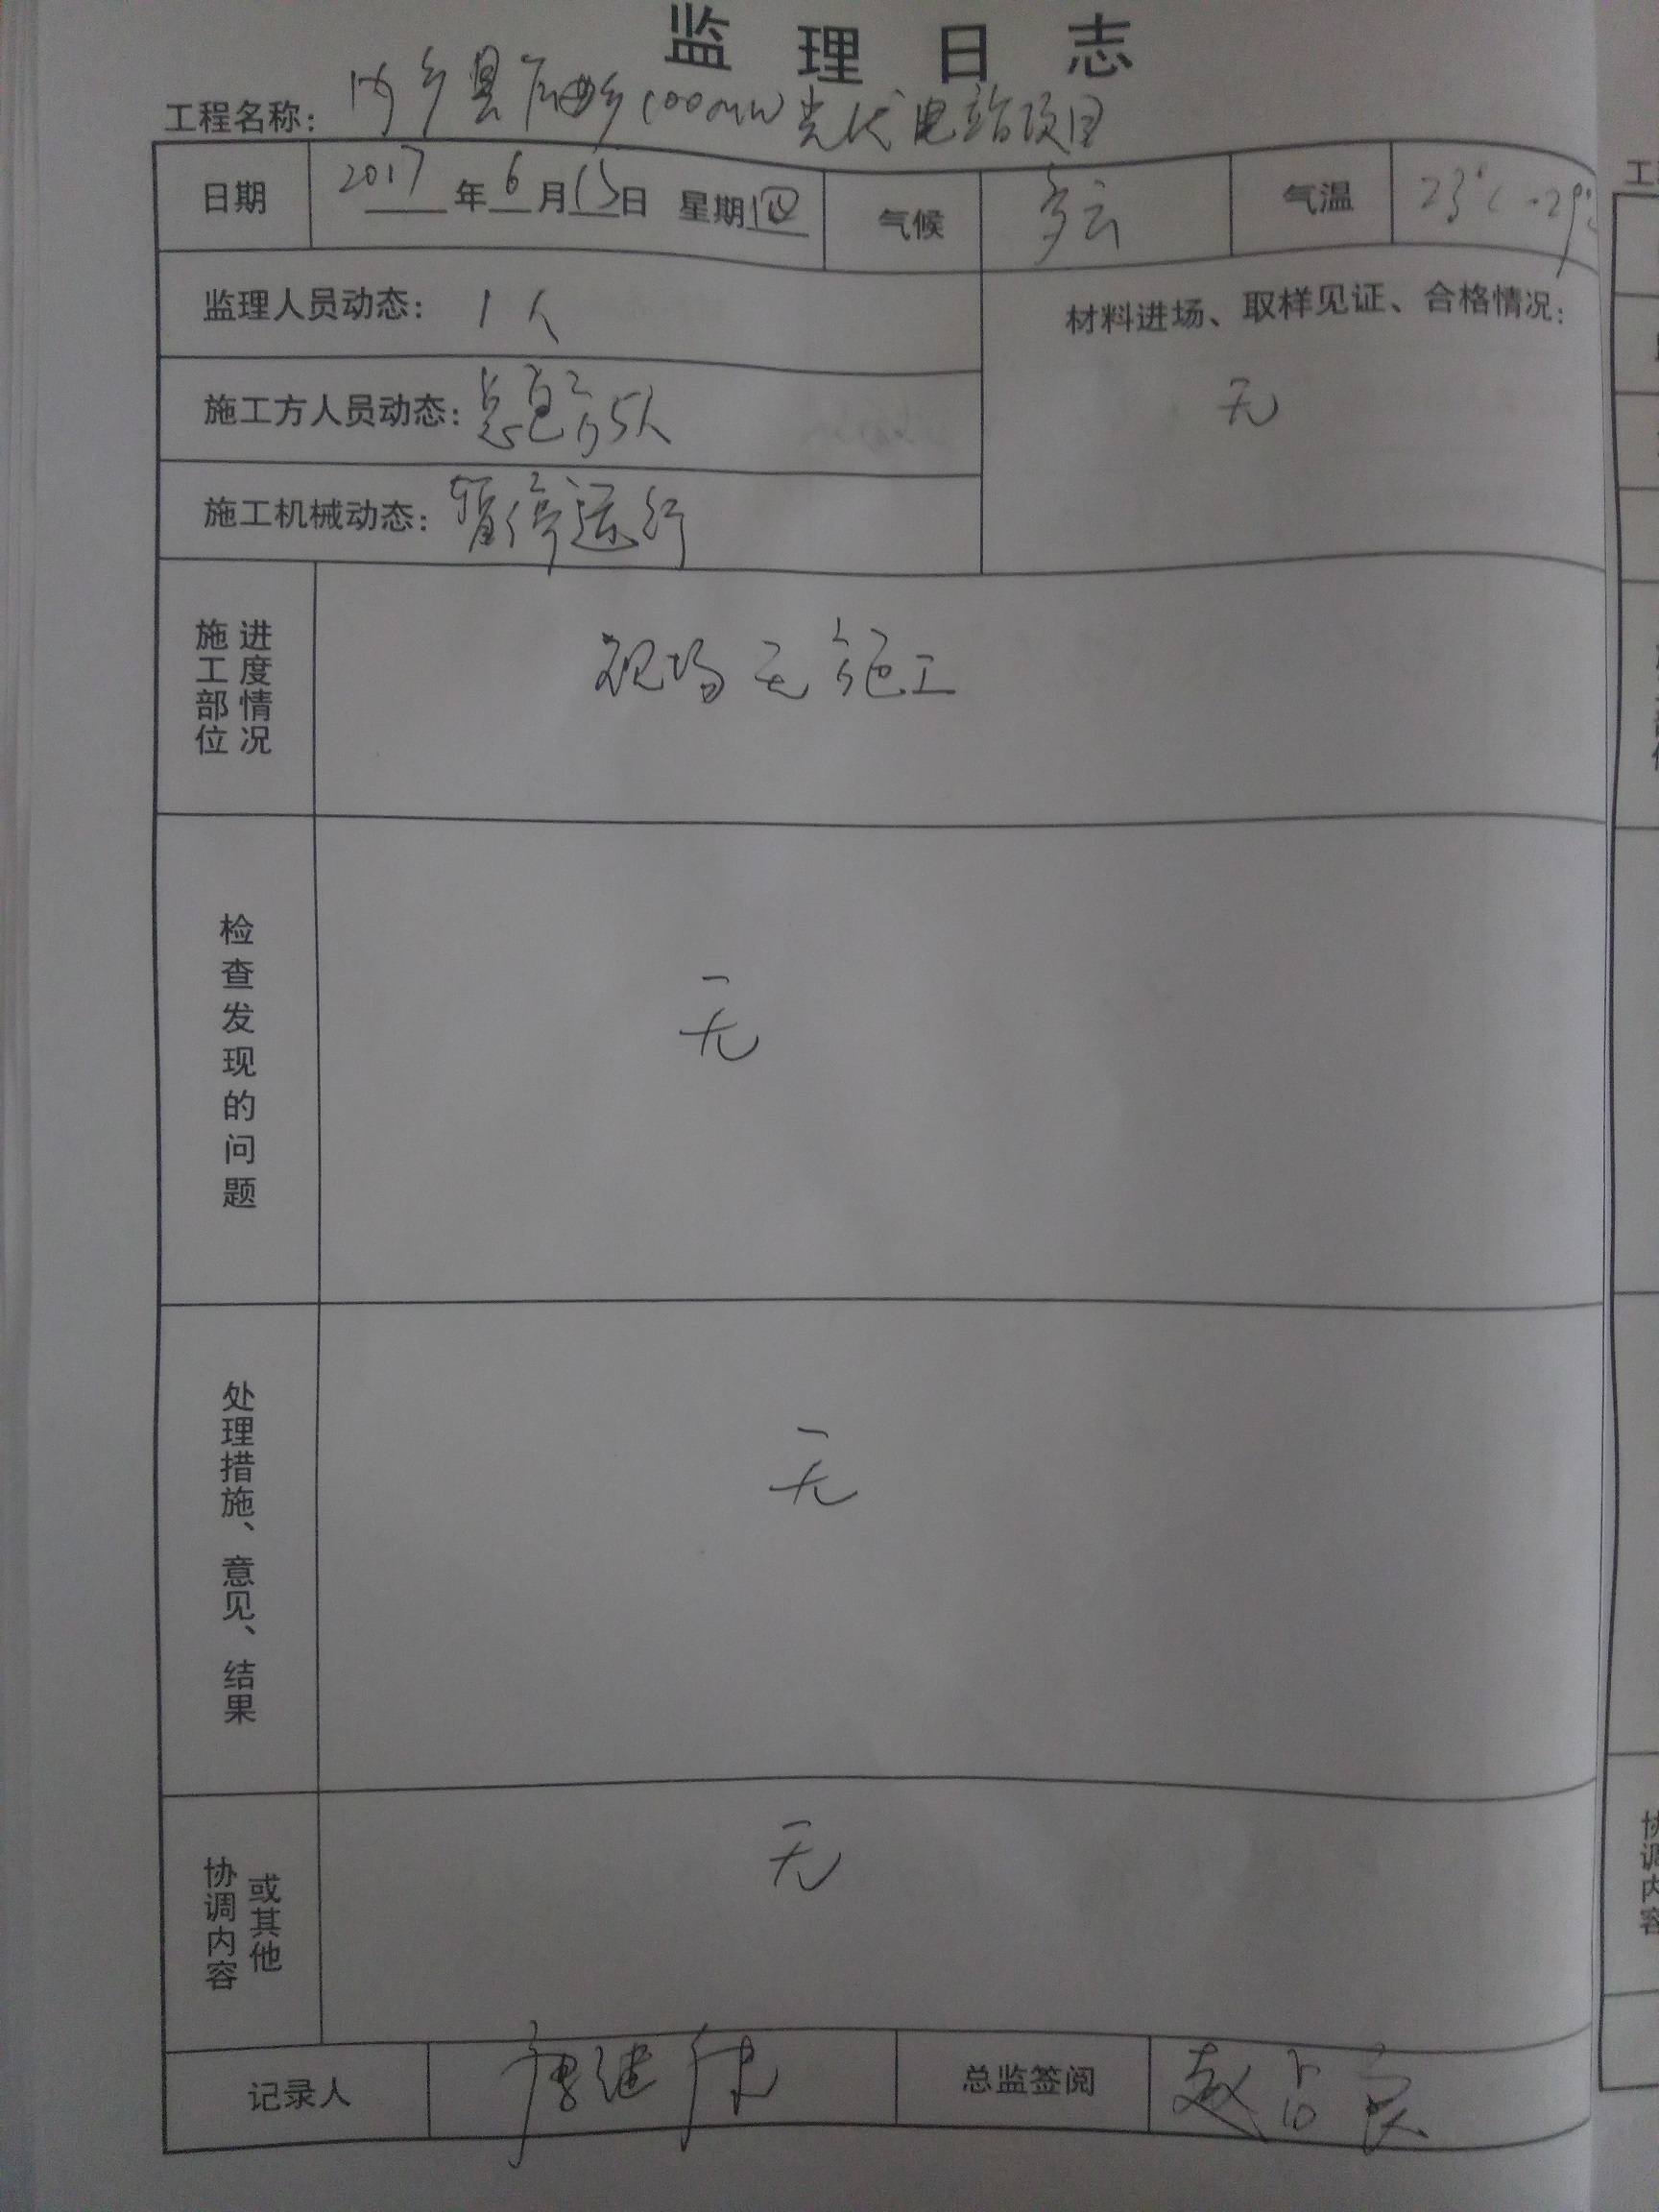 监理日志
工程名称：内乡县 100MW光伏电站项目
日期 2017年6月15日 星期四 气候 多云 气温 23℃-29℃
监理人员动态：1人
材料进场、取样见证、合格情况：
无
施工方人员动态：总包方5人
施工机械动态：暂停运行
施工部位进度情况 现场无施工
检查发现的问题 无
处理措施、意见、结果 无
协调内容或其他 无
记录人 总监签阅 赵占